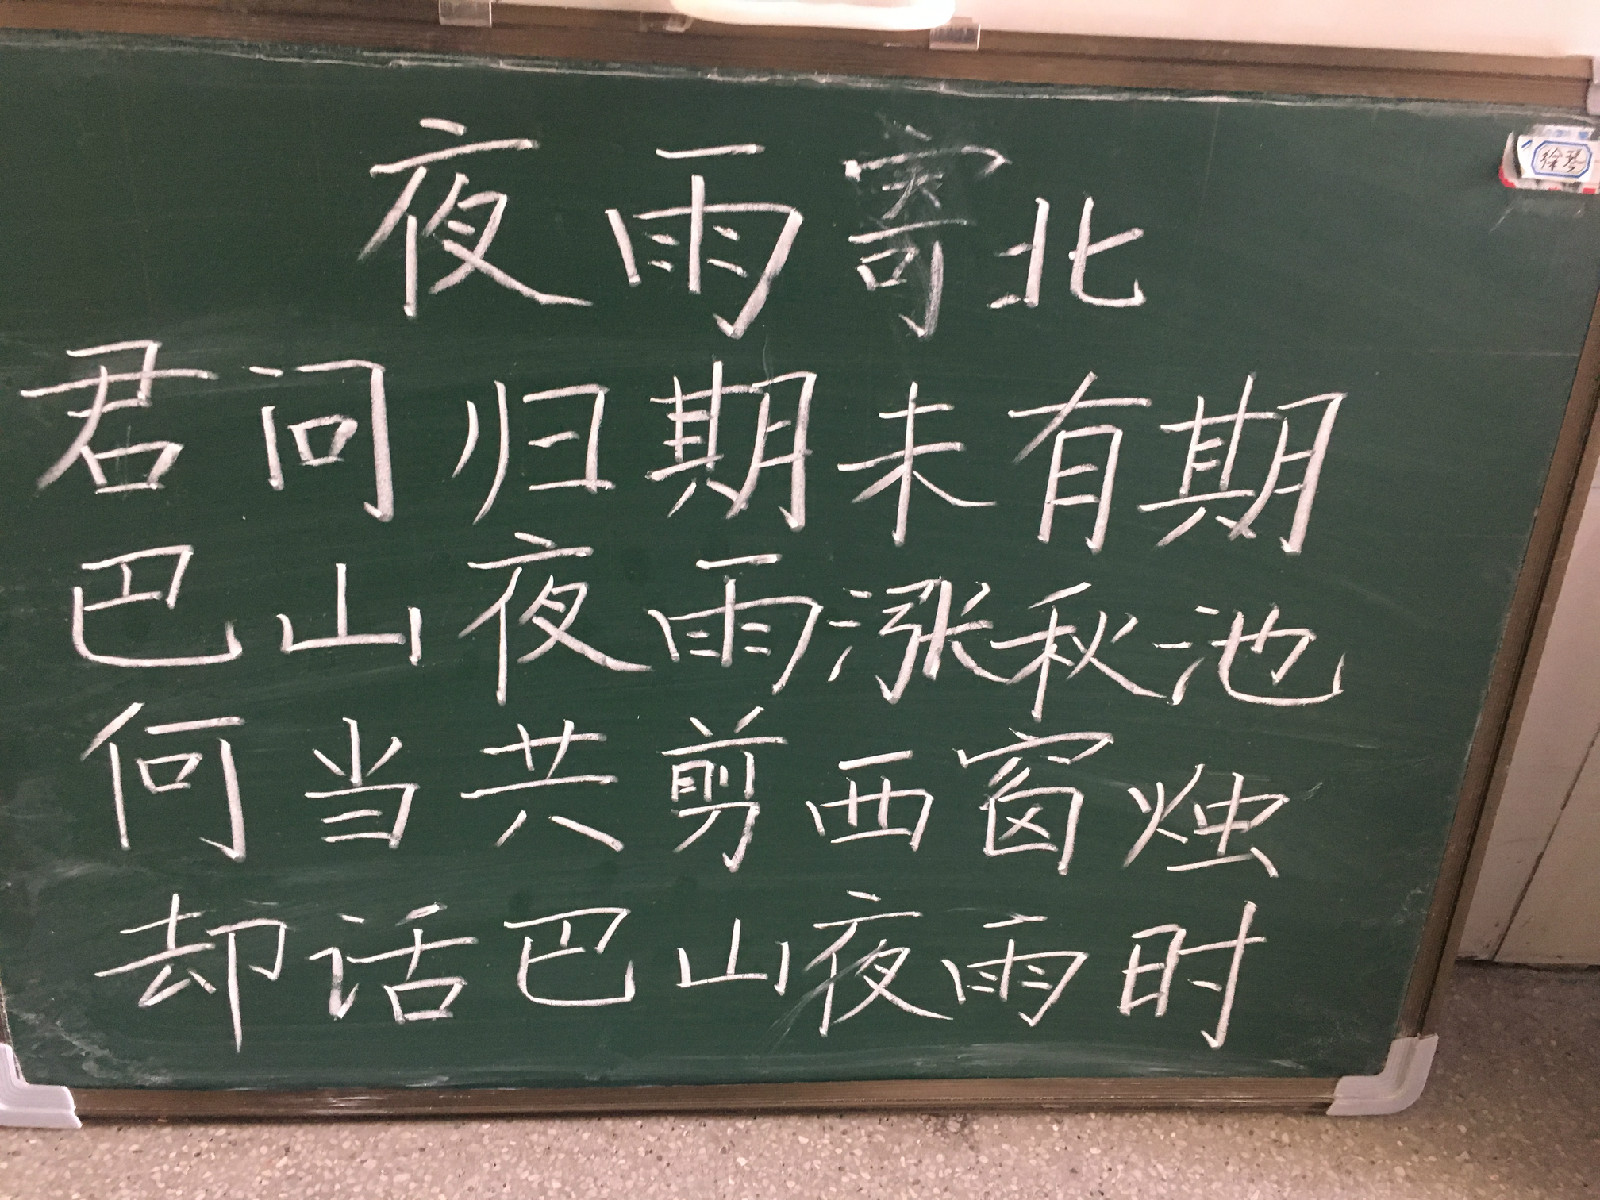 夜雨寄北
徐琴
君问归期未有期
巴山夜雨涨秋池
何当共剪西窗烛
却话巴山夜雨时